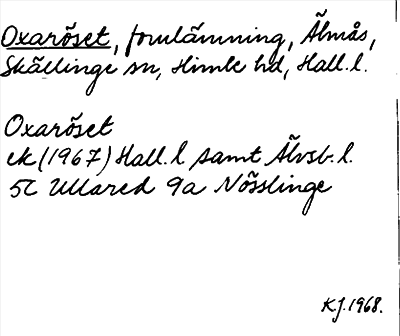 Oxaröset, fornlämning, Älmås,
Skällinge sn, Himle hd, Hall. l.
Oxaröset
ek (1967) Hall. l samt Älvsb. l.
5C Ullared 9a Nösslinge
KJ. 1968.